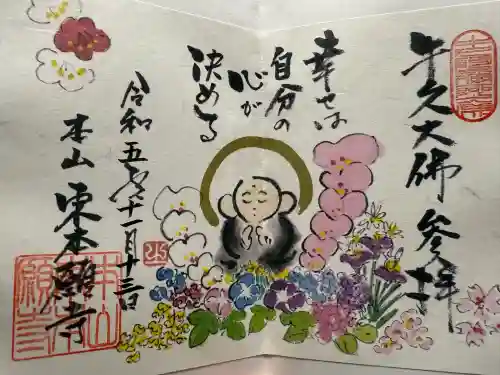 牛久大佛 参拝
幸せは
自分の
心が
決める
令和五年十一月十三日
本山 東本願寺